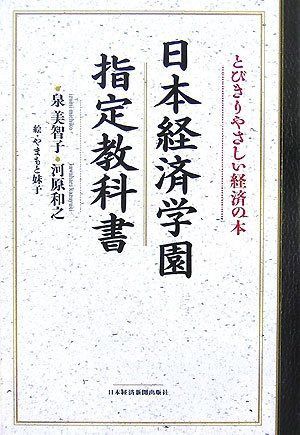 とびきりやさしい経済の本
日本経済学園
指定教科書
泉 美智子・河原和之
絵・やまもと妹子
日本経済新聞出版社